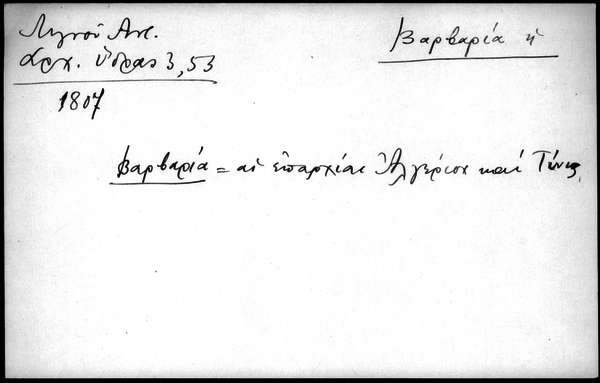 Λιγνού Αντ.
Αρχ. Ὕδρας 3, 53
1807
Βαρβαρία ἡ
Βαρβαρία = αἱ ἐπαρχίαι Ἀλγέριον καί Τύνις